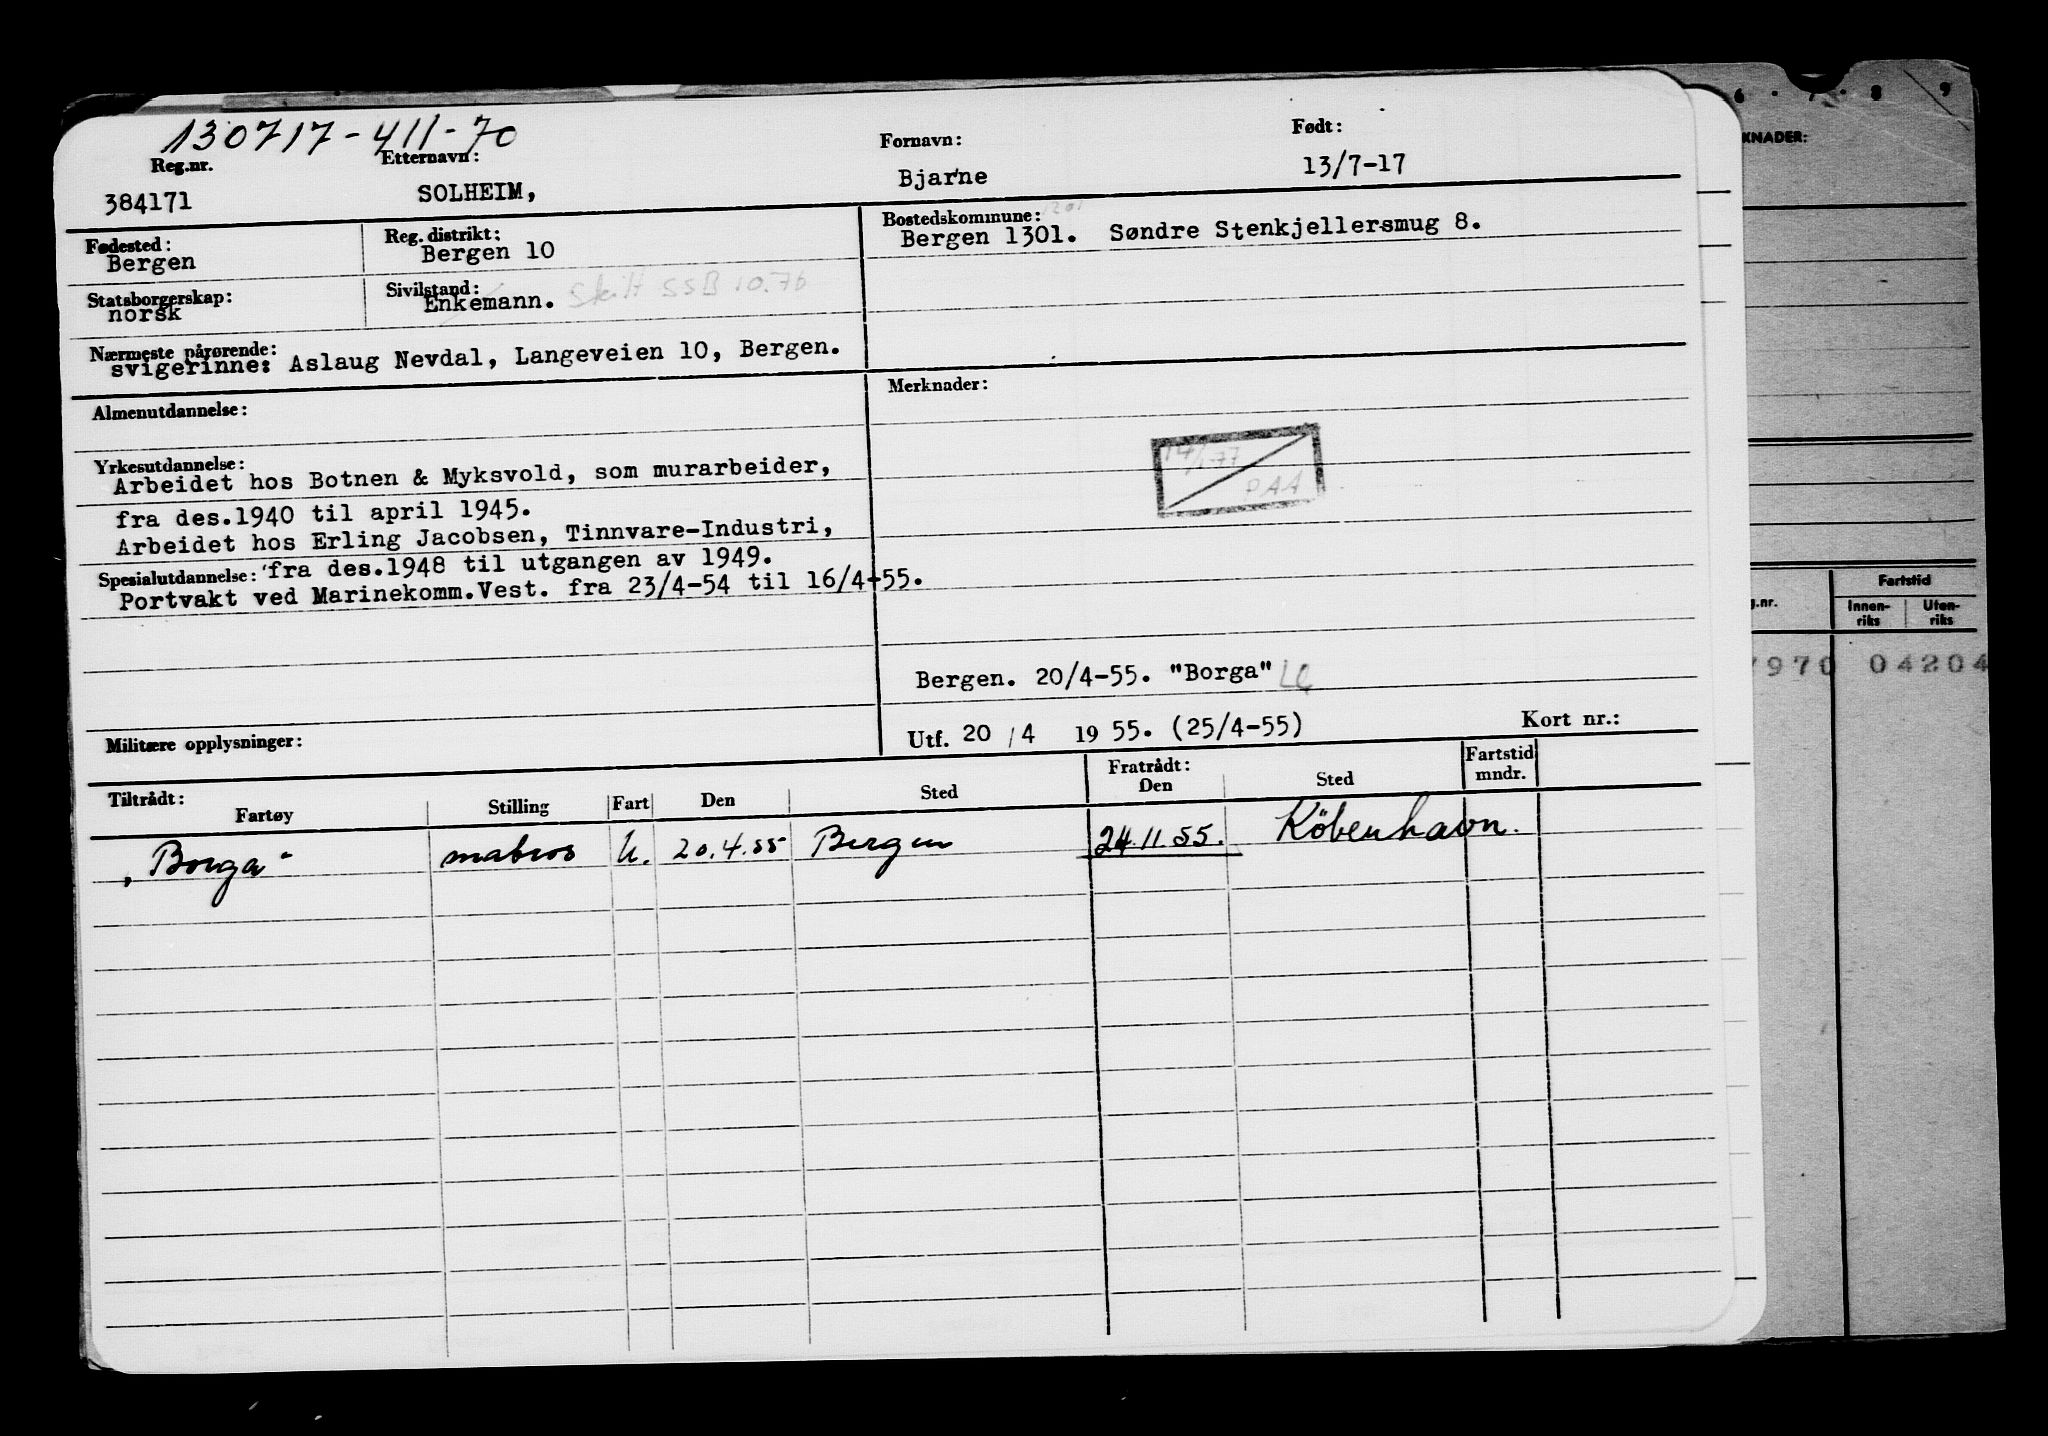 130717-411-70
Reg.nr. Etternavn: Fornavn: Født:
384171 SOLHEIM, Bjarne 13/7-17
Fødested: Reg. distrikt: Bostedskommune: 1201
Bergen Bergen 10 Bergen 1301. Søndre Stenkjellersmug 8.
Statsborgerskap: Sivilstand:
norsk Enkemann. Skilt SSB 10.76
Nærmeste pårørende:
svigerinne: Aslaug Nevdal, Langeveien 10, Bergen.
Almenutdannelse: Merknader:
Yrkesutdannelse:
Arbeidet hos Botnen & Myksvold, som murarbeider,
fra des.1940 til april 1945.
Arbeidet hos Erling Jacobsen, Tinnvare-Industri,
Spesialutdannelse: fra des.1948 til utgangen av 1949.
Portvakt ved Marinekomm.Vest. fra 23/4-54 til 16/4-55.
PAA
Bergen. 20/4-55. "Borga"
Militære opplysninger: Utf. 20/4 1955. (25/4-55) Kort nr.:
Tiltrådt: Fratrådt: Fartstid
Fartøy Stilling Fart Den Sted Den Sted mndr.
"Borga" matros U. 20.4.55 Bergen 24.11.55. København.
6 7 8 9
KNADER:
Fartstid
g.nr. Innen- Uten-
riks riks
7970 04204